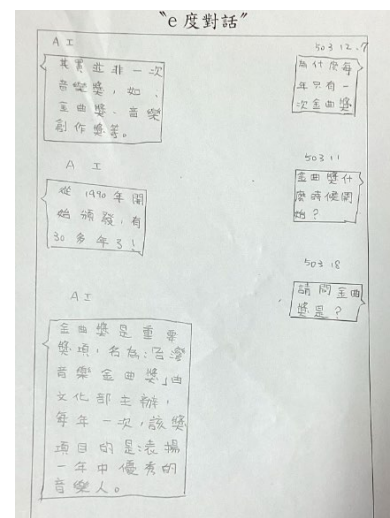 "e 度對話"
AI
其實並非一次
音樂獎,如、
金曲獎、音樂
創作獎等。
503 12.7
為什麼每
年只有一
次金曲獎
AI
從 1990 年開
始頒發,有
30 多年了!
503 11
金曲獎什
麼時候開
始?
503 18
請問金曲
獎是?
AI
金曲獎是重要
獎項,名為:台灣
音樂金曲獎」由
文化部主辦,
每年一次,該獎
項目的是:表揚
一年中優秀的
音樂人。